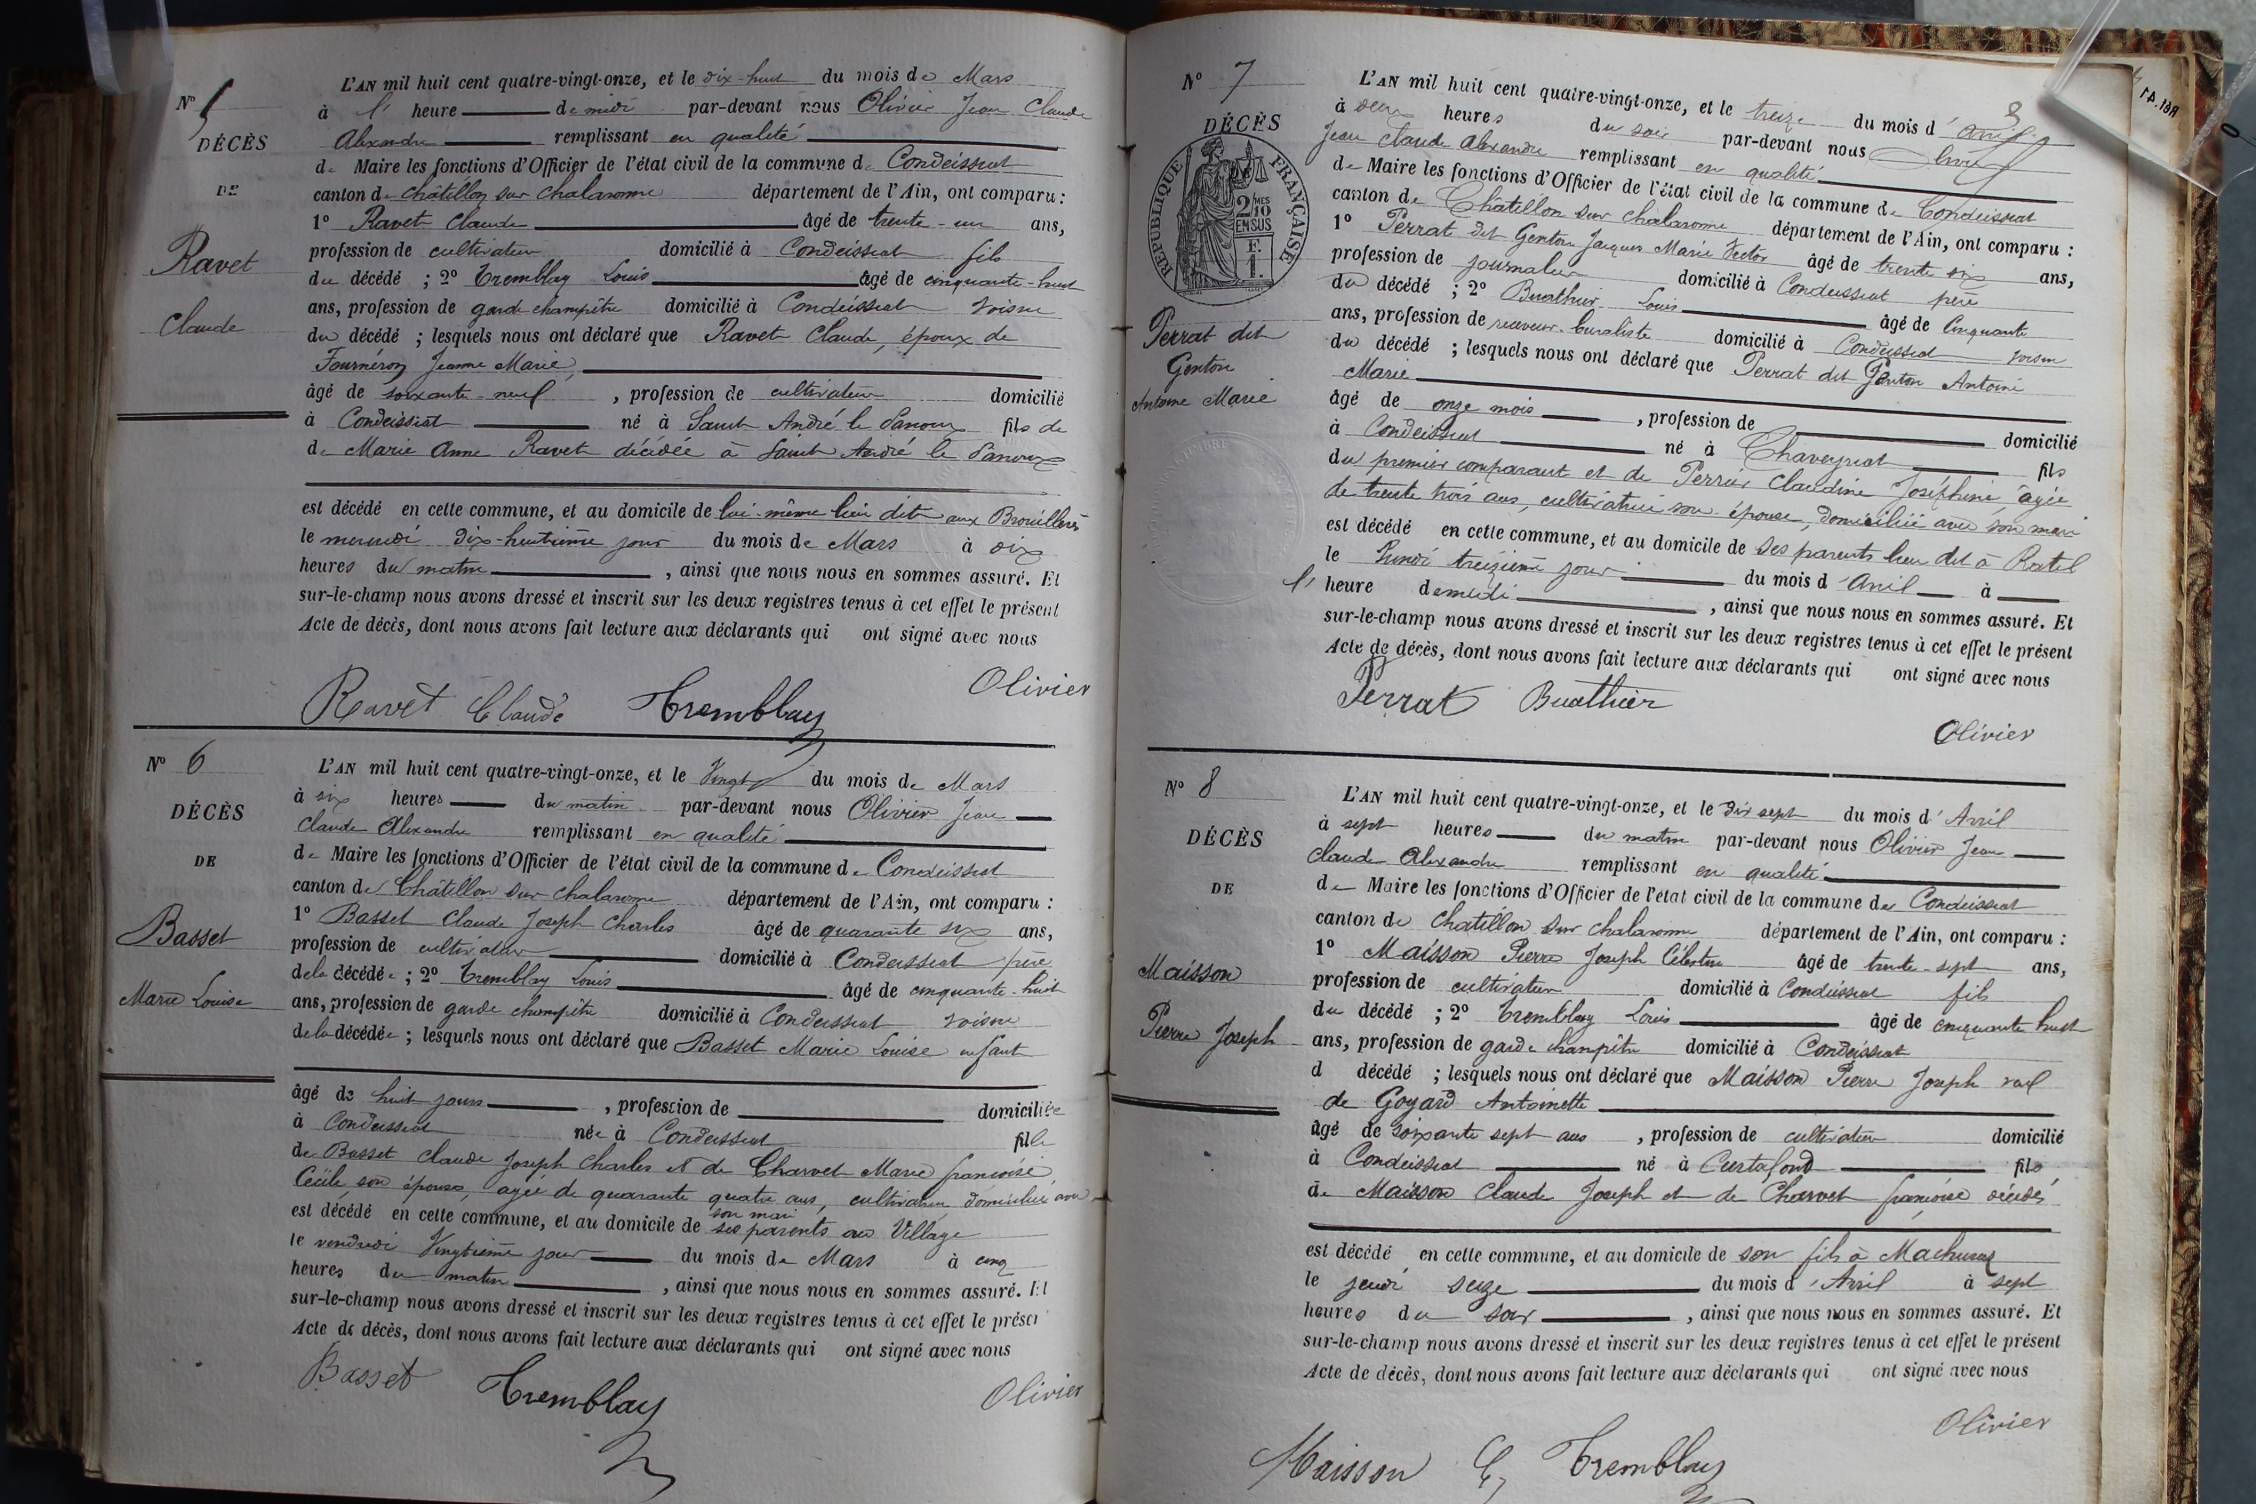 Nº 5
DÉCÈS
DE
Ravet
Claude
L'AN mil huit cent quatre-vingt-onze, et le dix-huit du mois de Mars
à l' heure de midi par-devant nous Olivier Jean Claude
Alexandre remplissant en qualité
de Maire les fonctions d'Officier de l'état civil de la commune de Condeissiat
canton de Châtillon sur Chalaronne département de l'Ain, ont comparu :
1º Ravet Claude âgé de trente-un ans,
profession de cultivateur domicilié à Condeissiat fils
du décédé ; 2º Tremblay Louis âgé de cinquante-huit
ans, profession de garde champêtre domicilié à Condeissiat voisin
du décédé ; lesquels nous ont déclaré que Ravet Claude, époux de
Fourneron Jeanne Marie,
âgé de soixante-neuf , profession de cultivateur domicilié
à Condeissiat né à Saint André le Panoux fils de
de Marie Anne Ravet décédée à Saint André le Panoux
est décédé en cette commune, et au domicile de lui-même lieu dit aux Brouillères
le mercredi dix-huitième jour du mois de Mars à dix
heures du matin , ainsi que nous nous en sommes assuré. Et
sur-le-champ nous avons dressé et inscrit sur les deux registres tenus à cet effet le présent
Acte de décès, dont nous avons fait lecture aux déclarants qui ont signé avec nous
Ravet Claude Tremblay Olivier
Nº 6
DÉCÈS
DE
Basset
Marie Louise
L'AN mil huit cent quatre-vingt-onze, et le Vingt du mois de Mars
à six heures du matin par-devant nous Olivier Jean
Claude Alexandre remplissant en qualité
de Maire les fonctions d'Officier de l'état civil de la commune de Condeissiat
canton de Châtillon sur Chalaronne département de l'Ain, ont comparu :
1º Basset Claude Joseph Charles âgé de quarante six ans,
profession de cultivateur domicilié à Condeissiat père
de la décédée ; 2º Tremblay Louis âgé de cinquante-huit
ans, profession de garde champêtre domicilié à Condeissiat voisin
de la décédée ; lesquels nous ont déclaré que Basset Marie Louise enfant
âgé de huit jours , profession de domiciliée
à Condeissiat née à Condeissiat fille
de Basset Claude Joseph Charles et de Charvet Marie françoise
Cécile son épouse, agée de quarante quatre ans, cultivatrice domiciliée avec
son mari
est décédé en cette commune, et au domicile de ses parents au Village
le vendredi Vingtième jour du mois de Mars à cinq
heures du matin , ainsi que nous nous en sommes assuré. Et
sur-le-champ nous avons dressé et inscrit sur les deux registres tenus à cet effet le présent
Acte de décès, dont nous avons fait lecture aux déclarants qui ont signé avec nous
Basset Tremblay Olivier
Nº 7
DÉCÈS
RÉPUBLIQUE FRANÇAISE
2 MES 10 EN SUS
F. 1.
Perrat dit
Genton
Antoine Marie
8
L'AN mil huit cent quatre-vingt-onze, et le treize du mois d'avril
à deux heures du soir par-devant nous Olivier
Jean Claude Alexandre remplissant en qualité
de Maire les fonctions d'Officier de l'état civil de la commune de Condeissiat
canton de Châtillon sur Chalaronne département de l'Ain, ont comparu :
1º Perrat dit Genton Jacques Marie Victor âgé de trente six ans,
profession de journalier domicilié à Condeissiat père
du décédé ; 2º Buathier Louis âgé de cinquante
ans, profession de receveur buraliste domicilié à Condeissiat voisin
du décédé ; lesquels nous ont déclaré que Perrat dit Genton Antoine
Marie
âgé de onze mois , profession de domicilié
à Condeissiat né à Chaveyriat fils
du premier comparant et de Perrier Claudine Joséphine, âgée
de trente trois ans, cultivatrice son épouse, domiciliée avec son mari
est décédé en cette commune, et au domicile de ses parents lieu dit à Ratel
le Lundi treizième jour du mois d'Avril à
l' heure de midi , ainsi que nous nous en sommes assuré. Et
sur-le-champ nous avons dressé et inscrit sur les deux registres tenus à cet effet le présent
Acte de décès, dont nous avons fait lecture aux déclarants qui ont signé avec nous
Perrat Buathier Olivier
Nº 8
DÉCÈS
DE
Maisson
Pierre Joseph
L'AN mil huit cent quatre-vingt-onze, et le dix sept du mois d'Avril
à sept heures du matin par-devant nous Olivier Jean
Claude Alexandre remplissant en qualité
de Maire les fonctions d'Officier de l'état civil de la commune de Condeissiat
canton de Chatillon sur Chalaronne département de l'Ain, ont comparu :
1º Maisson Pierre Joseph Célestin âgé de trente-sept ans,
profession de cultivateur domicilié à Condeissiat fils
du décédé ; 2º Tremblay Louis âgé de cinquante huit
ans, profession de garde champêtre domicilié à Condeissiat
d décédé ; lesquels nous ont déclaré que Maisson Pierre Joseph veuf
de Goyard Antoinette
âgé de soixante sept ans , profession de cultivateur domicilié
à Condeissiat né à Curtafond fils
de Maisson Claude Joseph et de Charvet françoise décédés
est décédé en cette commune, et au domicile de son fils à
le jeudi seize du mois d'Avril à sept
heures du soir , ainsi que nous nous en sommes assuré. Et
sur-le-champ nous avons dressé et inscrit sur les deux registres tenus à cet effet le présent
Acte de décès, dont nous avons fait lecture aux déclarants qui ont signé avec nous
Maisson Tremblay Olivier